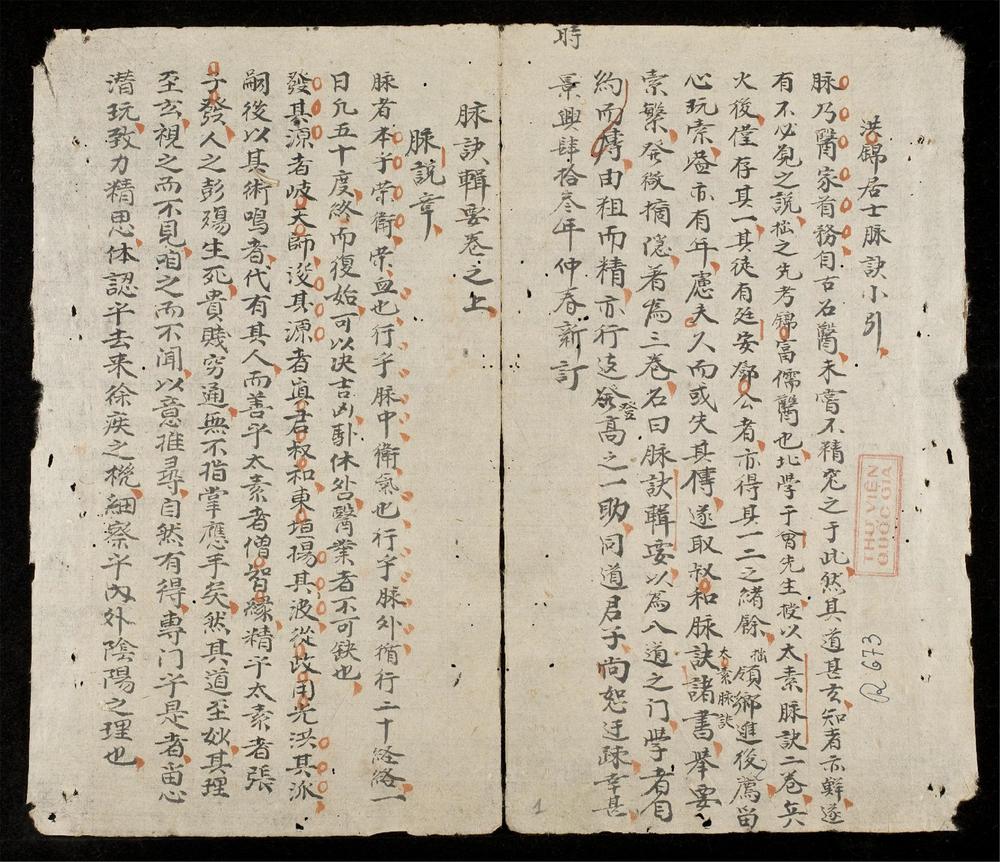 洪錦居士脉訣小引
脉乃醫家首務自古名醫未嘗不精究之于此然其道甚玄知者亦鮮遂
有不必覓之説拙之先考錦富儒醫也北学于胃先生授以太素脉訣二卷兵
火後僅存其一其徒有廷安鄧公者亦得其一二之緒餘拙領鄉進後篤留
心玩索歷亦有年慮夫久而或失其傳遂取叔和脉訣諸書太素脉訣舉要
索繁發微摘隐著為三卷名曰脉訣輯要以為入道之门學者自
約而博由粗而精亦行远登髙之一助同道君子尚恕迂疎幸甚
時
景興肆拾叁年仲春新訂
脉訣輯要卷之上
脉説章
脉者本乎荣衛荣血也行乎脉中衛氣也行乎脉外循行二十経絡一
日凡五十度終而復始可以决吉凶卧休咎醫業者不可缺也
發其源者岐天師浚其源者真君叔和東垣揚其波從政用光洪其派
嗣後以其術鳴者代有其人而善乎太素者僧智緣精乎太素者張
子發人之彭殤生死貴賤穷通無不指掌應手矣然其道至妙其理
至玄視之而不見咱之而不闻以意推尋自然有得専门乎是者畱心
潜玩致力精思体認乎去来徐疾之機細察乎內外陰陽之理也
THƯ VIỆN
QUỐC GIA
R 673
1